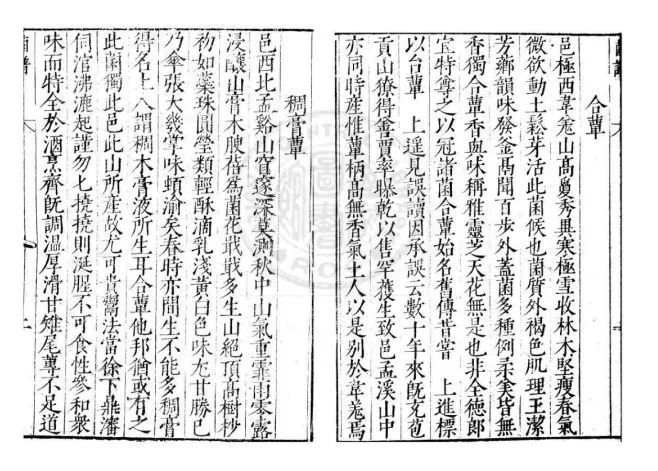 合蕈
邑極西韋羗山高夐秀異寒極雪收林木堅瘦春氣
微欲動土鬆芽活此菌候也菌質外褐色肌理玉潔
芳薌韻味發釡鬲聞百步外蓋菌多種例柔美皆無
香獨合蕈香與味稱雅靈芝天花無是也非全德郎
宜特尊之以冠諸菌合蕈始名舊傳昔嘗 上進標
以台蕈 上遥見誤讀因承誤云數十年來既充苞
貢山獠得善賈率曝乾以售罕獲生致邑孟溪山中
亦同時産惟蕈柄高無香氣土人以是别於韋羗焉
稠膏蕈
邑西北孟谿山窅邃深莫測秋中山氣重霏雨零露
浸釀山膏木腴蓓爲菌花戢戢多生山絕頂高樹杪
初如蘂珠圓瑩類輕酥滴乳淺黄白色味尤甘勝已
乃傘張大幾掌味頓渝矣春時亦間生不能多稠膏
得名土人謂稠木膏液所生耳合蕈他邦猶或有之
此菌獨此邑此山所産故尤可貴鬻法當徐下鼎瀋
伺涫沸漉起謹勿匕撓撓則涎腥不可食性參和衆
味而特全於酒烹齊既調温厚滑甘雉尾蓴不足道